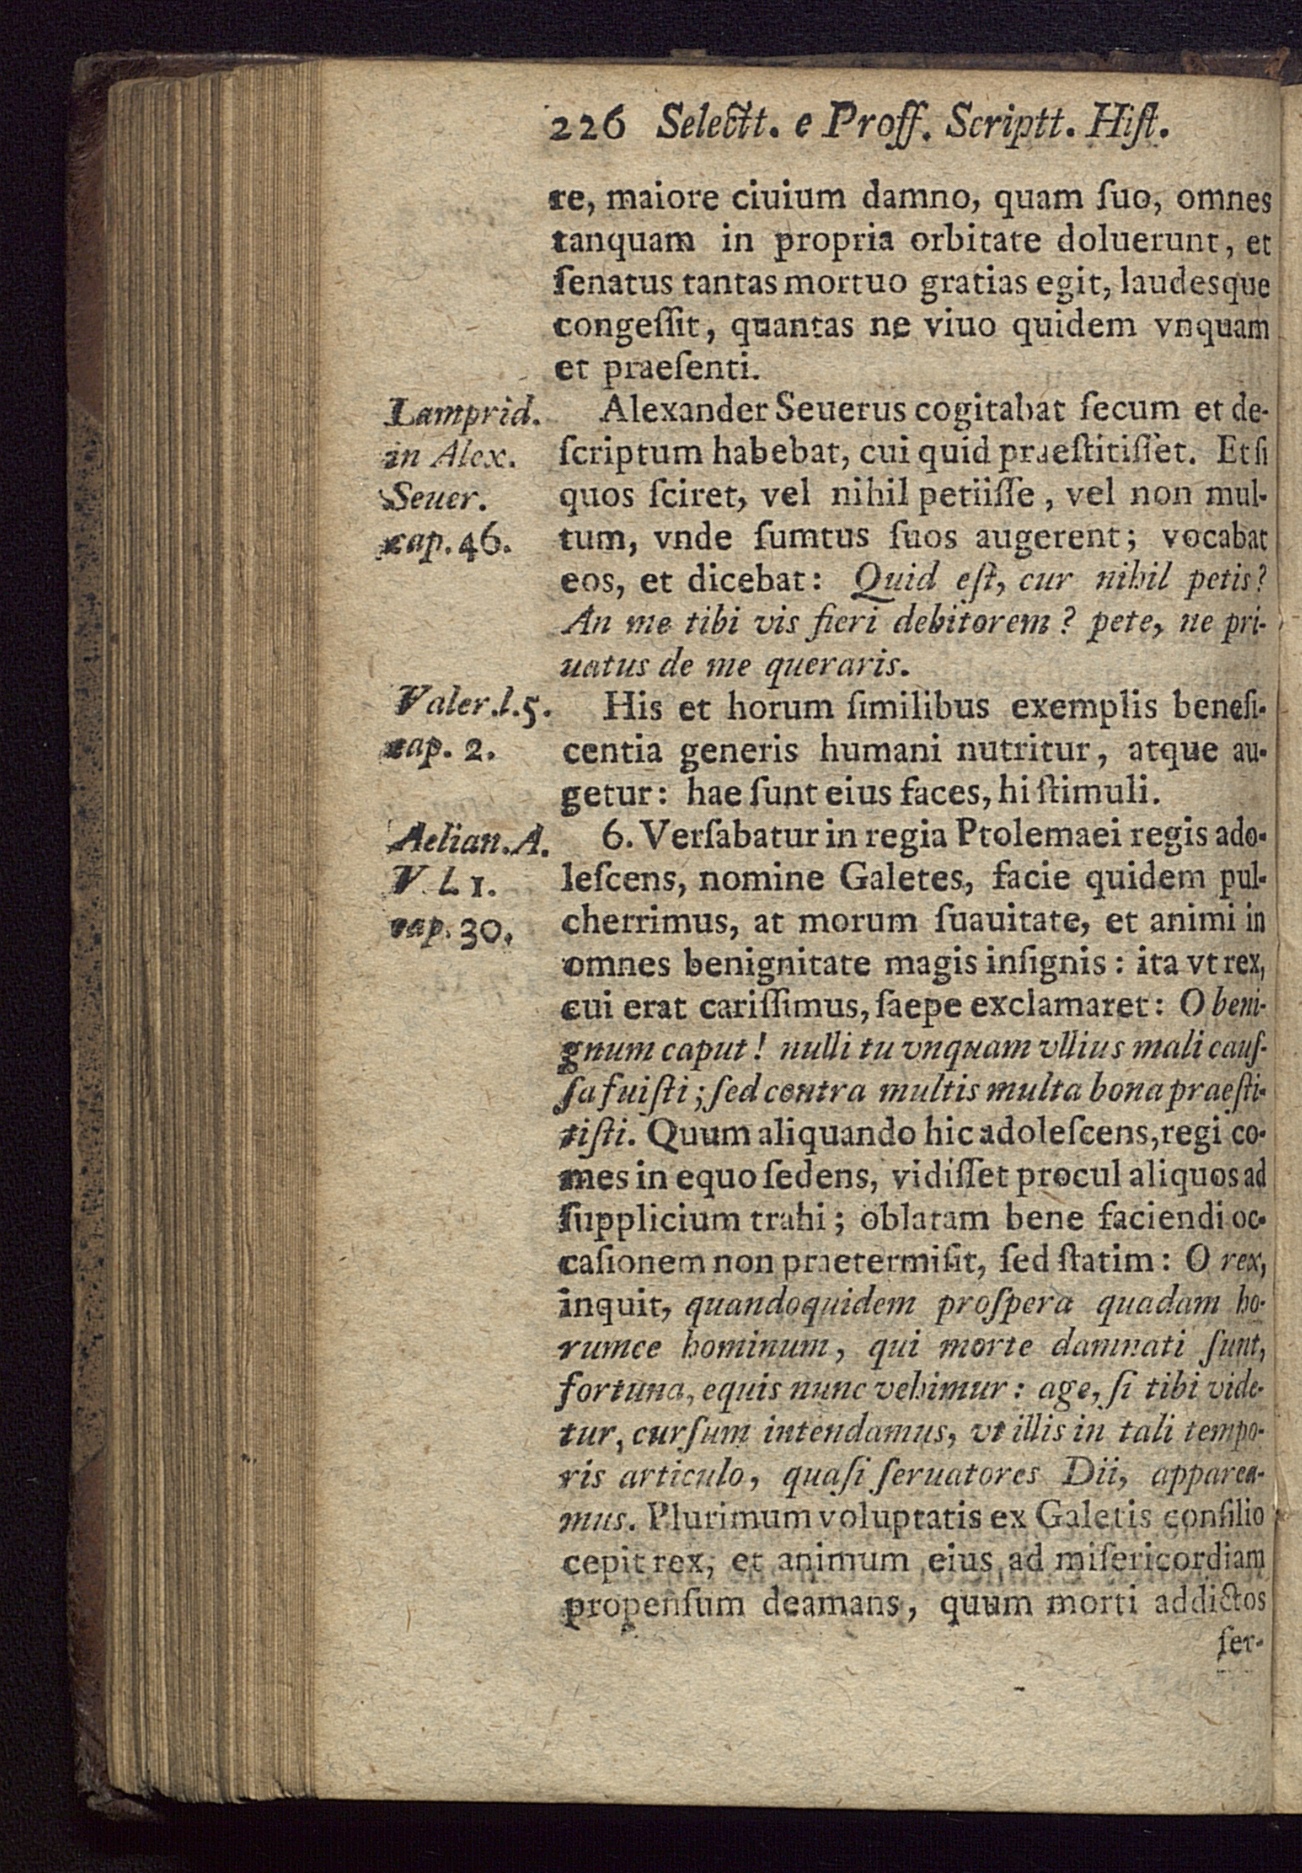 226 Selectt. e Proff. Scriptt. Hiſt.
re, maiore ciuium damno, quam ſuo, omnes
tanquam in propria orbitate doluerunt, et
ſenatus tantas mortuo gratias egit, laudesque
congeſſit, quantas ne viuo quidem vnquam
et praeſenti.
Lamprid.
in Alex.
Seuer.
cap. 46.
Alexander Seuerus cogitabat ſecum et de-
ſcriptum habebat, cui quid praeſtitiſſet. Et ſi
quos ſciret, vel nihil petiiſſe, vel non mul-
tum, vnde ſumtus ſuos augerent; vocabat
eos, et dicebat: Quid eſt, cur nihil petis?
An me tibi vis fieri debitorem? pete, ne pri-
uatus de me queraris.
Valer. l. 5.
cap. 2.
His et horum ſimilibus exemplis benefi-
centia generis humani nutritur, atque au-
getur: hae ſunt eius faces, hi ſtimuli.
Aelian. A.
V. L 1.
cap. 30.
6. Verſabatur in regia Ptolemaei regis ado-
leſcens, nomine Galetes, facie quidem pul-
cherrimus, at morum ſuauitate, et animi in
omnes benignitate magis inſignis: ita vt rex,
cui erat cariſſimus, ſaepe exclamaret: O beni-
gnum caput! nulli tu vnquam vllius mali cauſ-
ſa fuiſti; ſed contra multis multa bona praeſti-
tiſti. Quum aliquando hic adoleſcens, regi co-
mes in equo ſedens, vidiſſet procul aliquos ad
ſupplicium trahi; oblatam bene faciendi oc-
caſionem non praetermiſit, ſed ſtatim: O rex,
inquit, quandoquidem proſpera quadam ho-
rumce hominum, qui morte damnati ſunt,
fortuna, equis nunc vehimur: age, ſi tibi vide-
tur, curſum intendamus, vt illis in tali tempo-
ris articulo, quaſi ſeruatores Dii, apparea-
mus. Plurimum voluptatis ex Galetis conſilio
cepit rex, et animum eius ad miſericordiam
propenſum deamans, quum morti addictos
ſer-